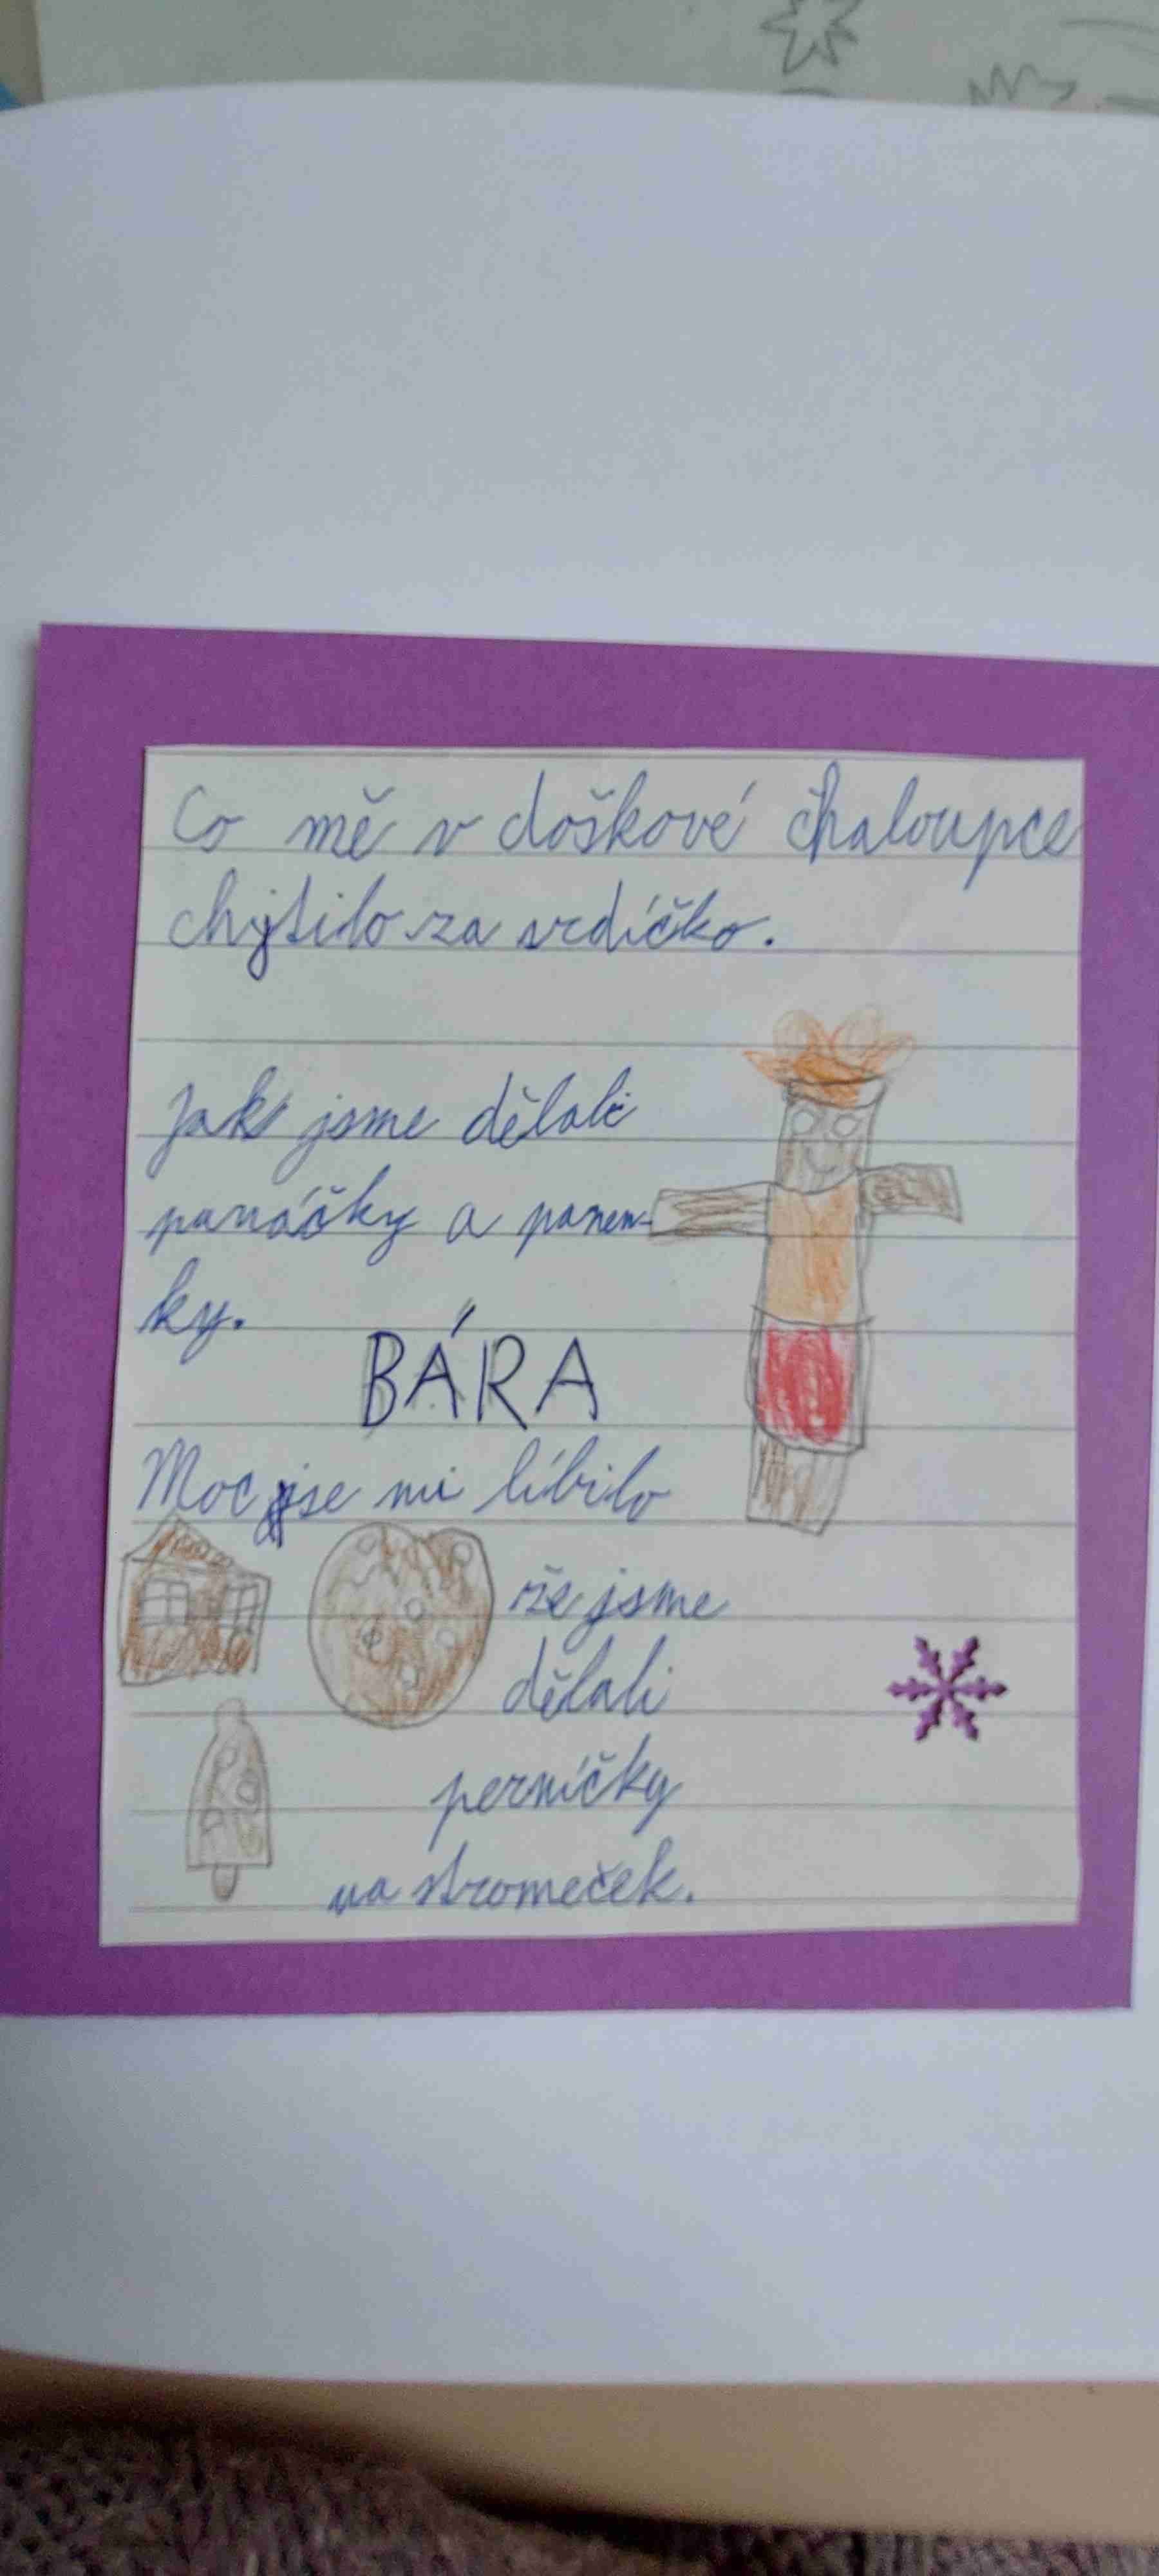 Co mě v doškové chaloupce
chytilo za srdíčko.
Jak jsme dělali
panáčky a panen-
ky.
BÁRA
Moc se mi líbilo
že jsme
dělali
perníčky
na stromeček.